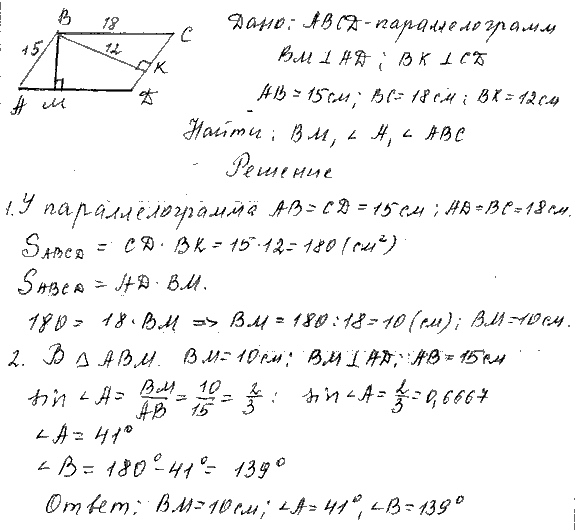 B 18 C
15 12 K
A M D
Дано: ABCD - параллелограмм
BM ⊥ AD ; BK ⊥ CD
AB = 15 см ; BC = 18 см ; BK = 12 см
Найти: BM, ∠ A, ∠ ABC
Решение
1. У параллелограмма AB = CD = 15 см ; AD = BC = 18 см.
S ABCD = CD · BK = 15 · 12 = 180 (см²)
S ABCD = AD · BM.
180 = 18 · BM => BM = 180 : 18 = 10 (см) ; BM = 10 см.
2. В △ ABM. BM = 10 см ; BM ⊥ AD ; AB = 15 см
sin ∠ A = BM/AB = 10/15 = 2/3 ; sin ∠ A = 2/3 = 0,6667
∠ A = 41°
∠ B = 180° - 41° = 139°
Ответ: BM = 10 см ; ∠ A = 41°, ∠ B = 139°